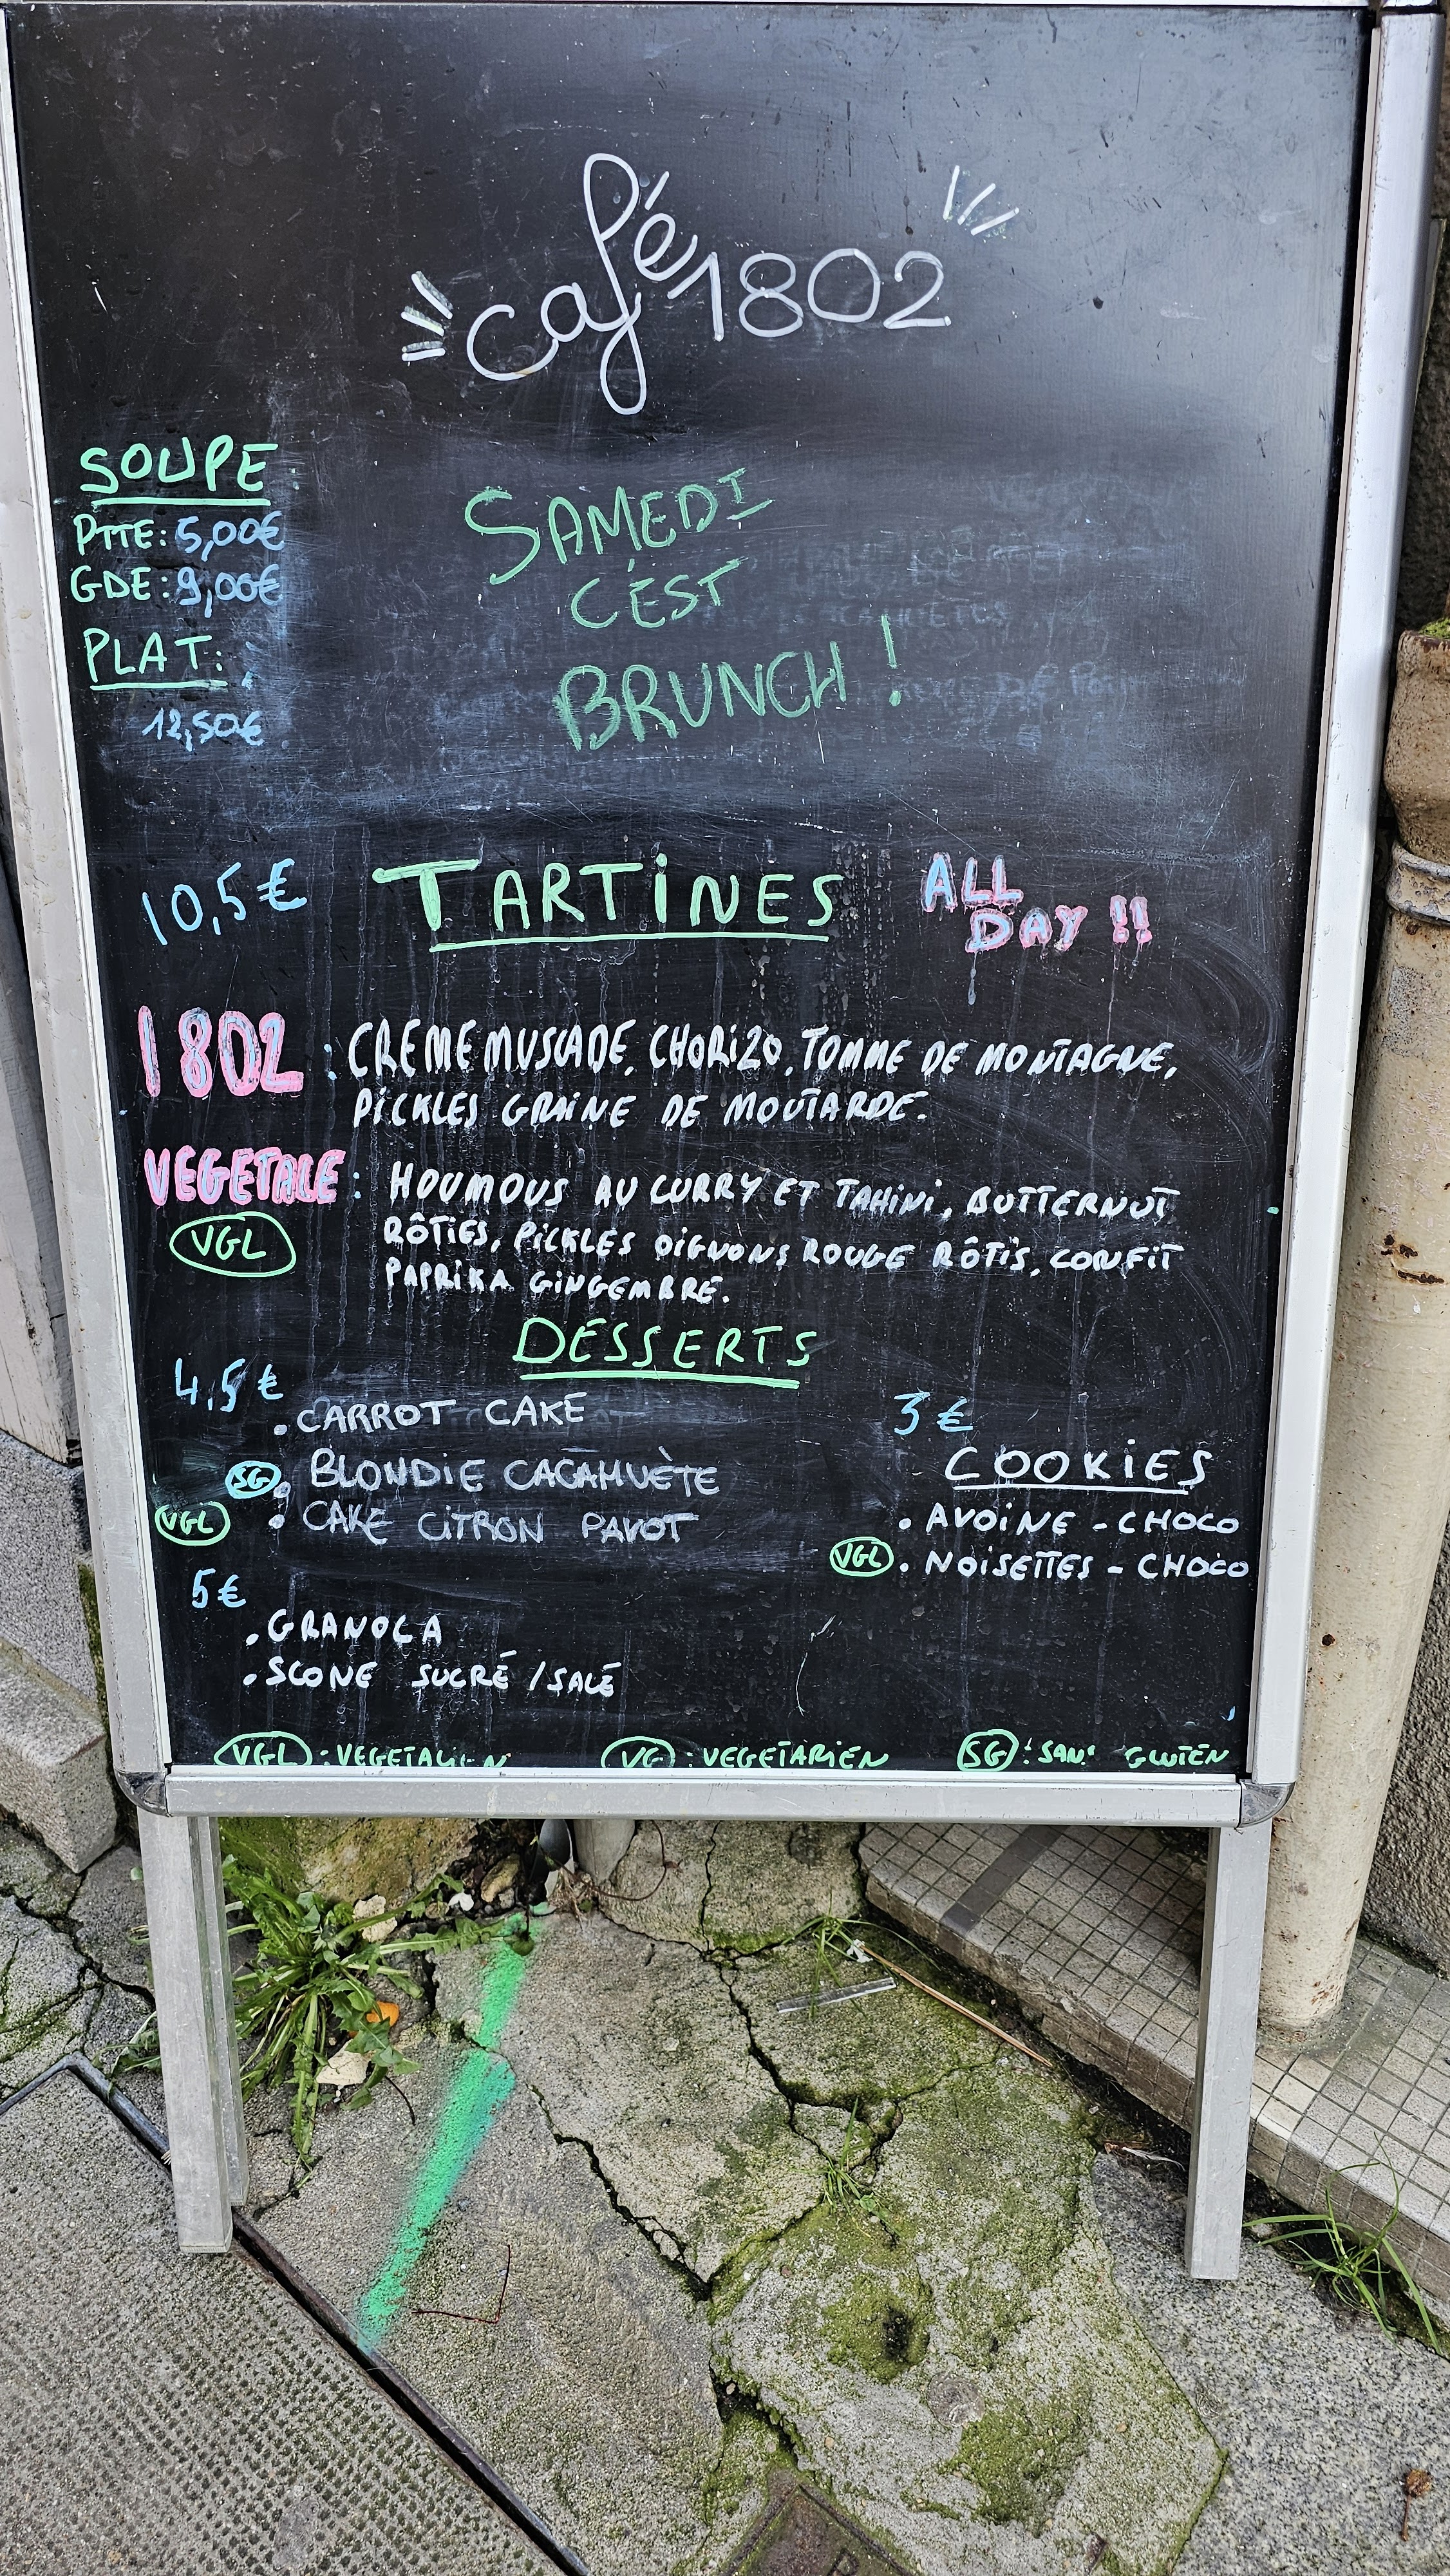 café 1802
SOUPE
PTTE: 5,00€
GDE: 9,00€
PLAT:
12,50€
SAMEDI
C'EST
BRUNCH !
10,5 € TARTINES ALL
DAY !!
1802 : CREME MUSCADE, CHORIZO, TOMME DE MONTAGNE,
PICKLES GRAINE DE MOUTARDE.
VEGETALE : HOUMOUS AU CURRY ET TAHINI, BUTTERNUT
VGL RÔTIES, PICKLES OIGNONS ROUGE RÔTIS, CONFIT
PAPRIKA GINGEMBRE.
DESSERTS
4,5 €
. CARROT CAKE
SG . BLONDIE CACAHUÈTE
VGL . CAKE CITRON PAVOT
5 €
. GRANOLA
. SCONE SUCRÉ / SALÉ
3 €
COOKIES
. AVOINE - CHOCO
VGL . NOISETTES - CHOCO
VGL : VEGETALIEN VG : VEGETARIEN SG : SANS GLUTEN